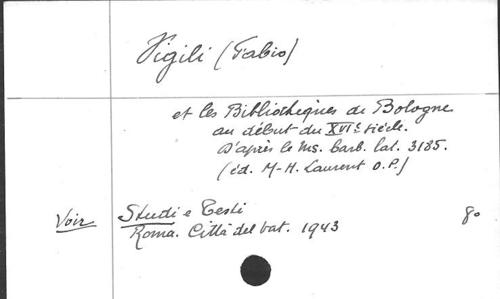 Vigili (Fabio)
et les Bibliothèques de Bologne
au début du XVIe siècle.
D'après le Ms. Barb. lat. 3185.
(éd. M-H. Laurent O.P.)
Voir Studi e Testi 80
Roma. Città del Vat. 1943